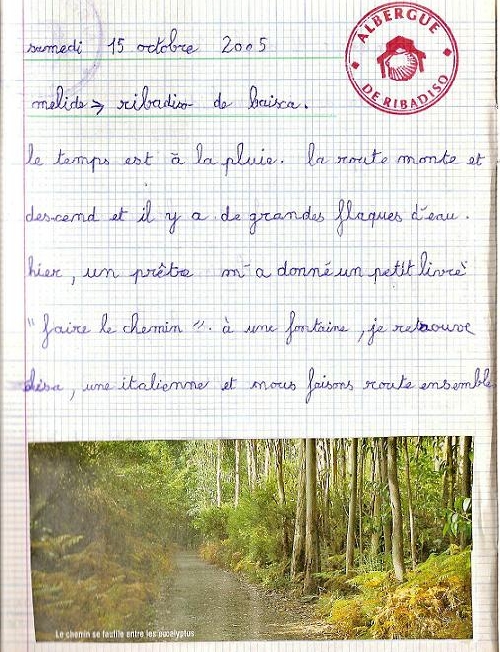 ALBERGUE
DE RIBADISO
samedi 15 octobre 2005
melide → ribadiso de baisca.
le temps est à la pluie. la route monte et
descend et il y a de grandes flaques d'eau.
hier, un prêtre m'a donné un petit livre
"faire le chemin". à une fontaine, je retrouve
disa, une italienne et nous faisons route ensemble
Le chemin se faufile entre les eucalyptus